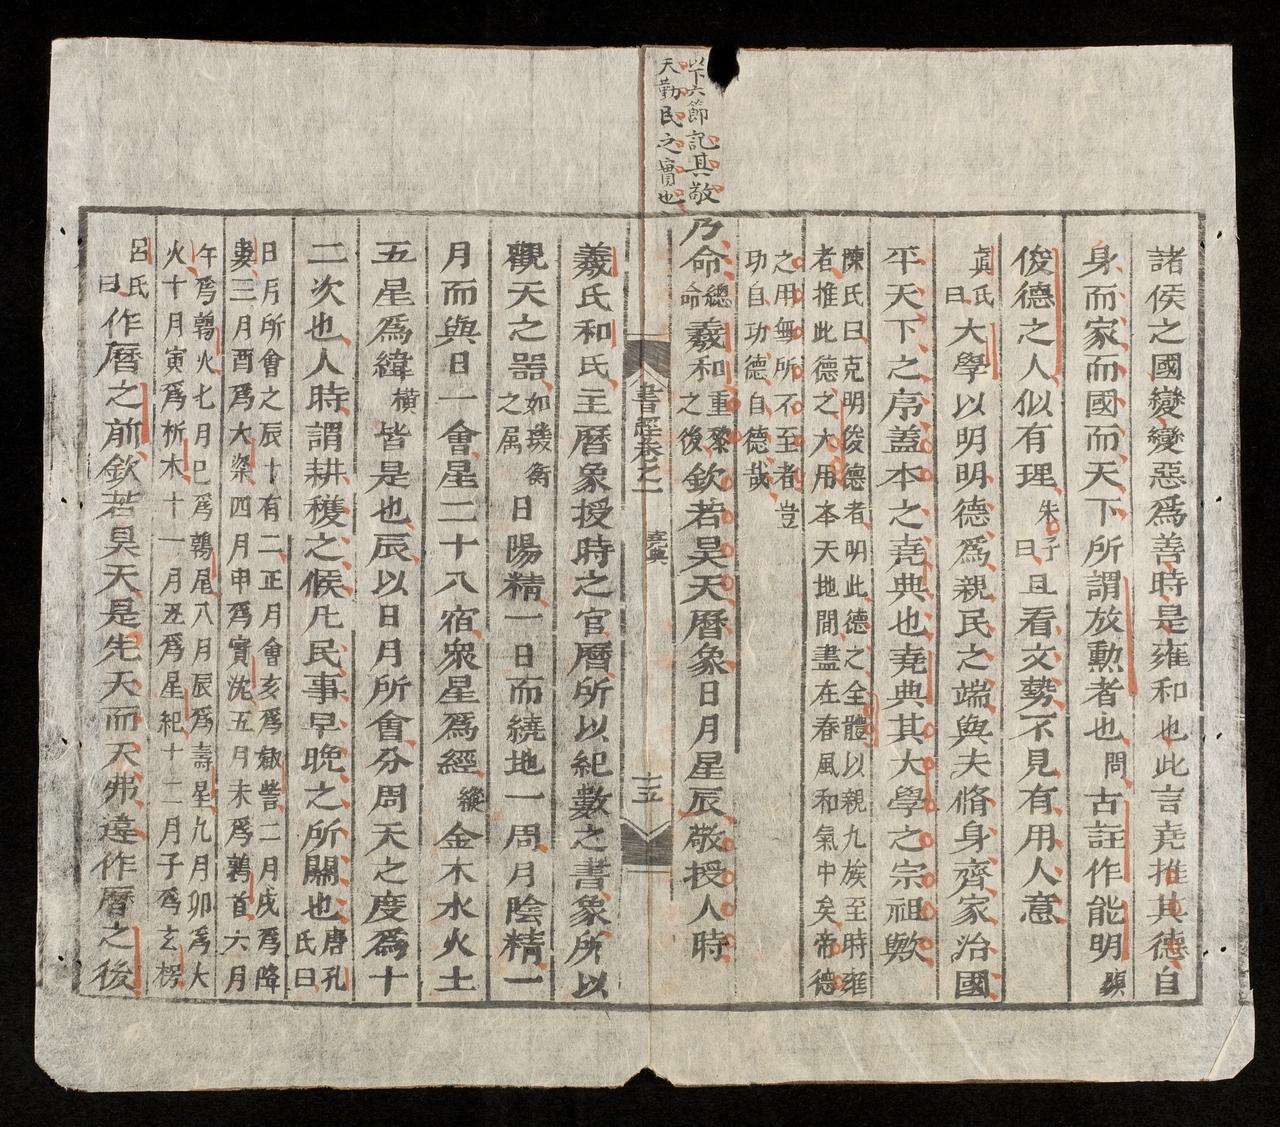 以下六節記其敬
天勤民之實也
諸侯之國變變惡爲善時是雍和也此言堯推其德自
身而家而國而天下所謂放勳者也問古註作能明顯
俊德之人似有理朱子曰且看文勢不見有用人意
眞氏曰大學以明明德爲親民之端與夫脩身齊家治國
平天下之序蓋本之堯典也堯典其大學之宗祖歟
陳氏曰克明俊德者明此德之全體以親九族至時雍
者推此德之大用本天地間盡在春風和氣中矣帝德
之用無所不至者豈
功自功德自德哉
乃命總命羲和重黎之後欽若昊天曆象日月星辰敬授人時
書經卷之一 堯典 十五
羲氏和氏主曆象授時之官曆所以紀數之書象所以
觀天之器如璣衡之屬日陽精一日而繞地一周月陰精一
月而與日一會星二十八宿衆星爲經縱金木水火土
五星爲緯橫皆是也辰以日月所會分周天之度爲十
二次也人時謂耕穫之候凡民事早晚之所關也唐孔氏曰
日月所會之辰十有二正月會亥爲娵訾二月戌爲降
婁三月酉爲大梁四月申爲實沈五月未爲鶉首六月
午爲鶉火七月巳爲鶉尾八月辰爲壽星九月卯爲大
火十月寅爲析木十一月丑爲星紀十二月子爲玄枵
呂氏曰作曆之前欽若昊天是先天而天弗違作曆之後